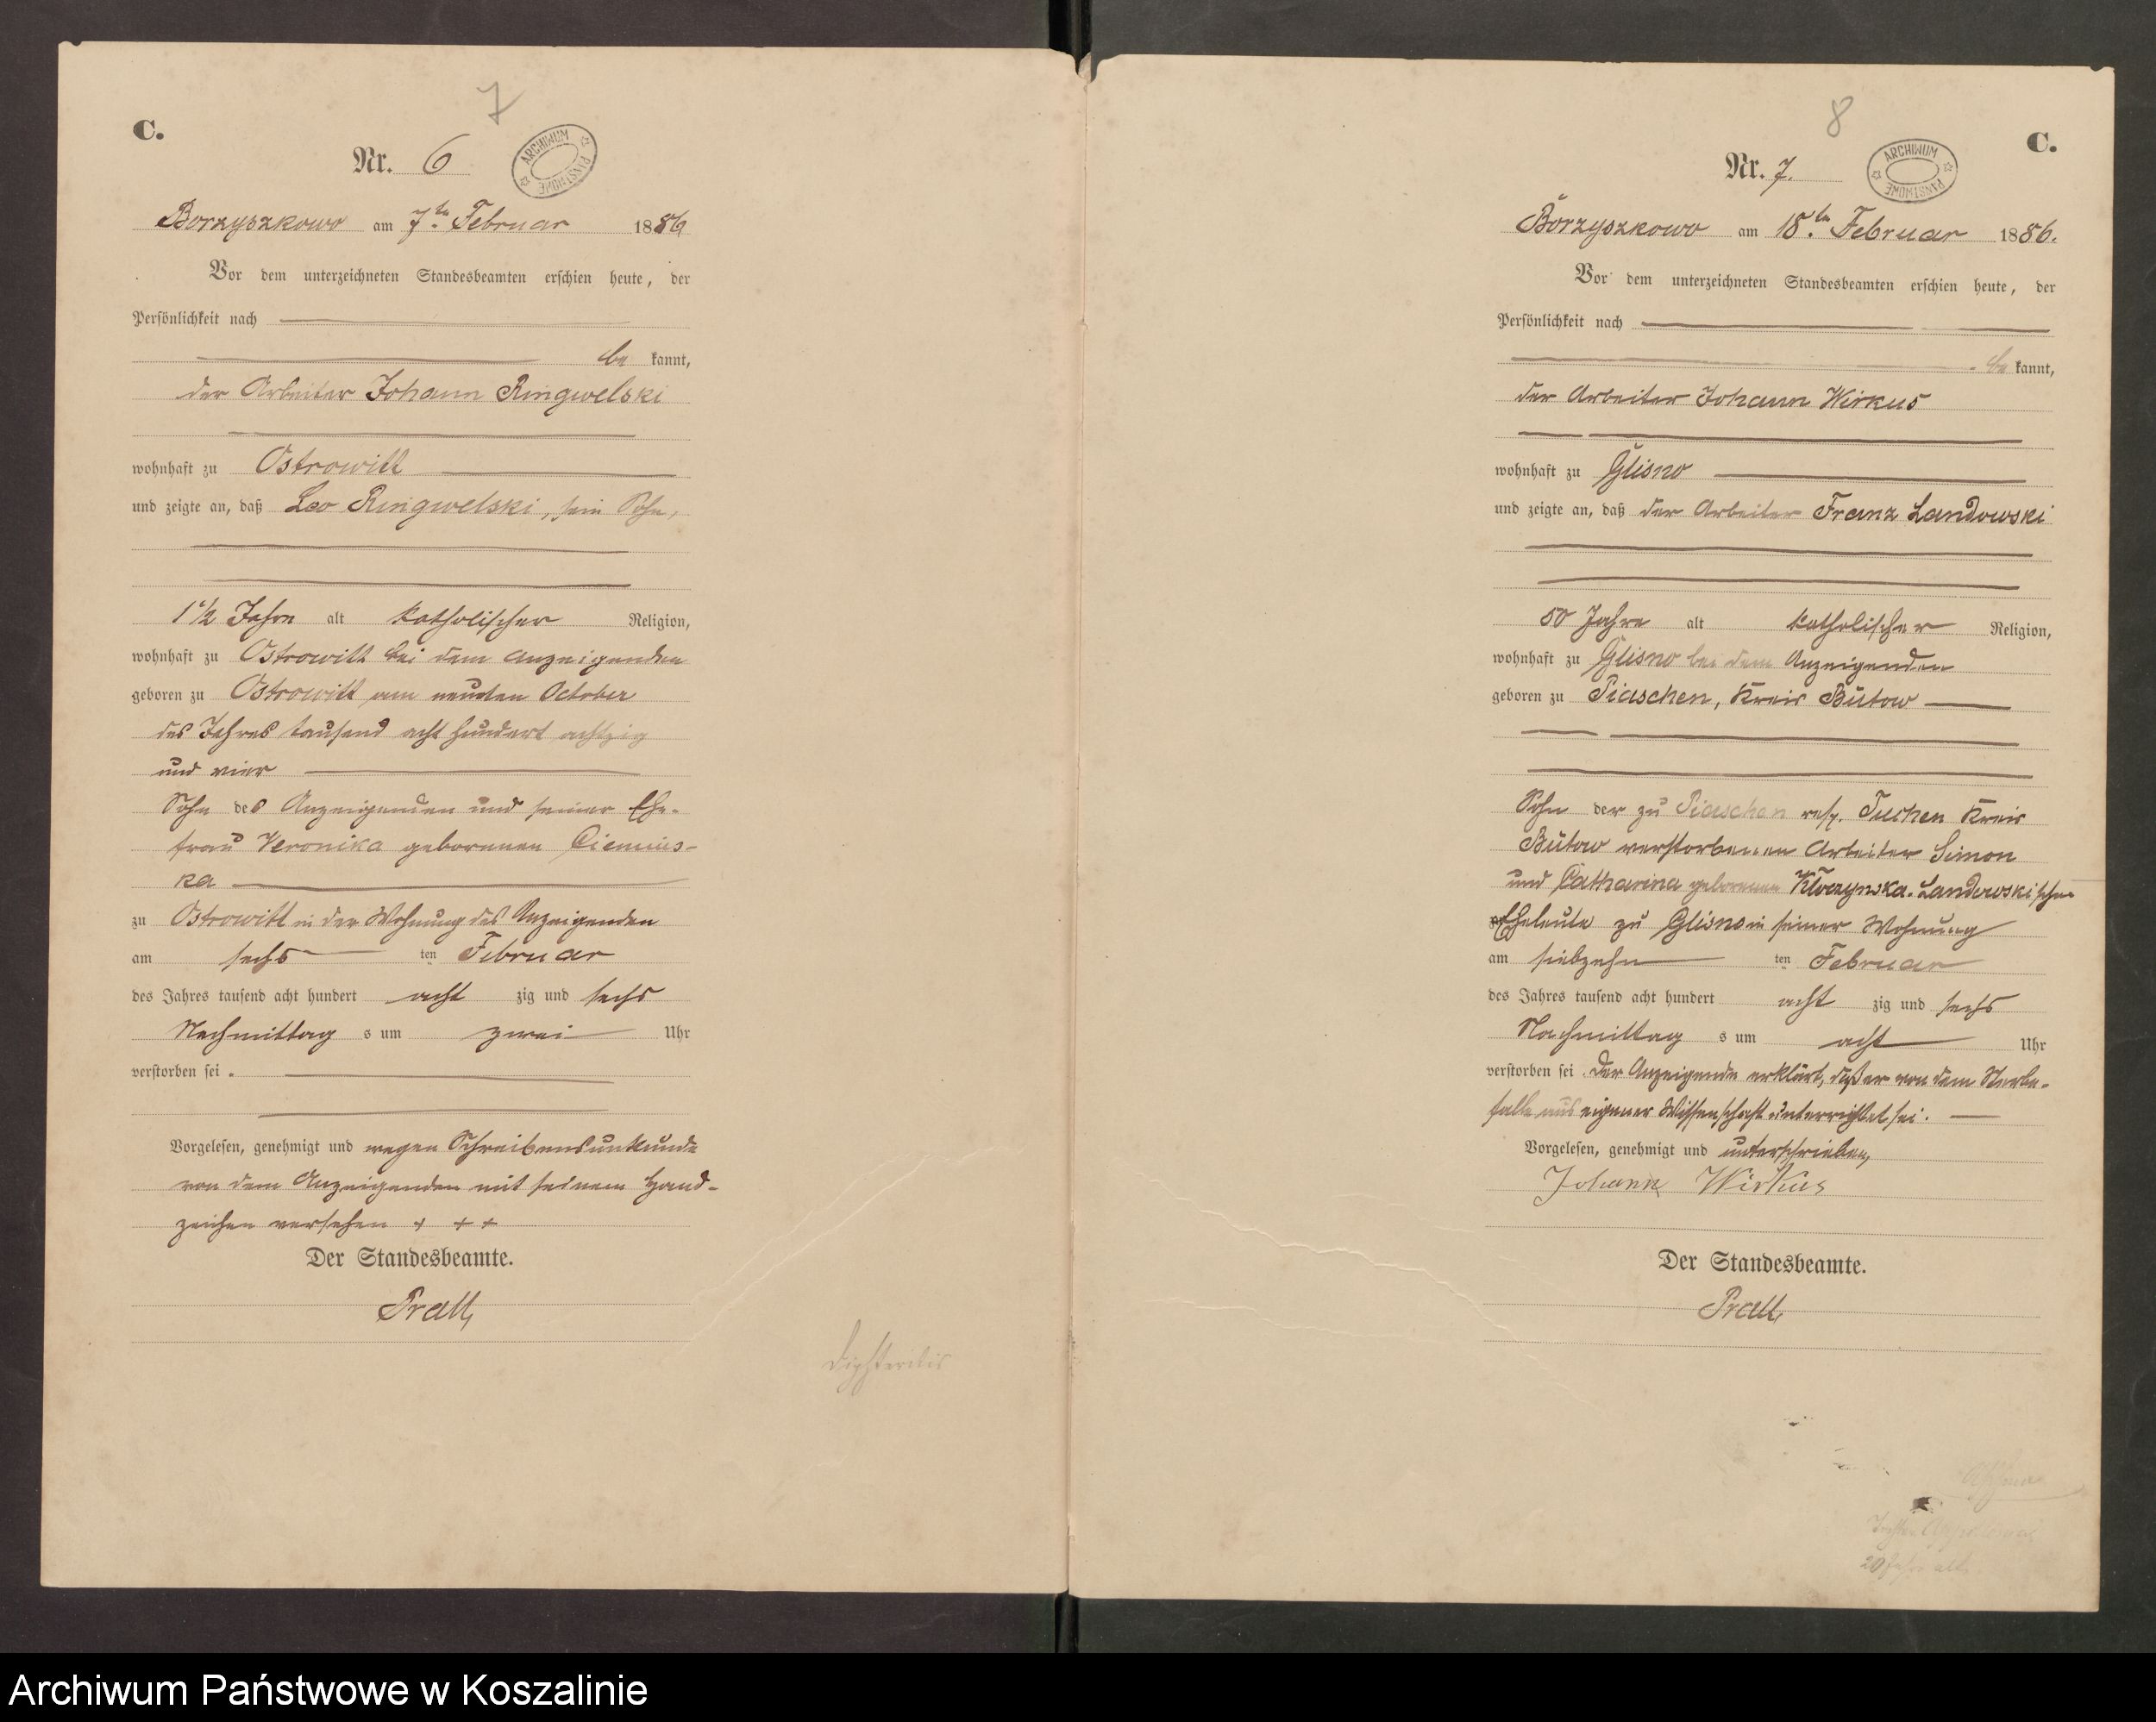 7
C.
Nr. 6
ARCHIWUM PAŃSTWOWE
Borzyszkowo am 7ten Februar 1886
Vor dem unterzeichneten Standesbeamten erschien heute, der
Persönlichkeit nach
be kannt,
der Arbeiter Johann Ringwelski
wohnhaft zu Ostrowitt
und zeigte an, daß Leo Ringwelski, sein Sohn,
1 1/2 Jahre alt katholischer Religion,
wohnhaft zu Ostrowitt bei dem Anzeigenden
geboren zu Ostrowitt am neunten October
des Jahres tausend acht hundert achtzig
und vier
Sohn des Anzeigenden und seiner Ehe-
frau Veronika geborenen Ciemins-
ka
zu Ostrowitt in der Wohnung des Anzeigenden
am sechs ten Februar
des Jahres tausend acht hundert acht zig und sechs
Nachmittag s um zwei Uhr
verstorben sei.
Vorgelesen, genehmigt und wegen Schreibensunkunde
von dem Anzeigenden mit seinem Hand-
zeichen versehen + + +
Der Standesbeamte.
Prall
Diphteritis
8
C.
Nr. 7.
ARCHIWUM PAŃSTWOWE
Borzyszkowo am 18ten Februar 1886.
Vor dem unterzeichneten Standesbeamten erschien heute, der
Persönlichkeit nach
be kannt,
der Arbeiter Johann Wirkus
wohnhaft zu Glisno
und zeigte an, daß der Arbeiter Franz Landowski
50 Jahre alt katholischer Religion,
wohnhaft zu Glisno bei dem Anzeigenden
geboren zu Piaschen, Kreis Bütow
Sohn der zu Piaschen resp. Tuchen Kreis
Bütow verstorbenen Arbeiter Simon
und Catharina geborenen Landowskischen
Eheleute zu Glisno in seiner Wohnung
am siebzehn ten Februar
des Jahres tausend acht hundert acht zig und sechs
Nachmittag s um acht Uhr
verstorben sei. Der Anzeigende erklärt, daß er von dem Sterbe-
falle aus eigener Wissenschaft unterrichtet sei.
Vorgelesen, genehmigt und unterschrieben,
Johann Wirkus
Der Standesbeamte.
Prall
20 Jahre alt
Archiwum Państwowe w Koszalinie